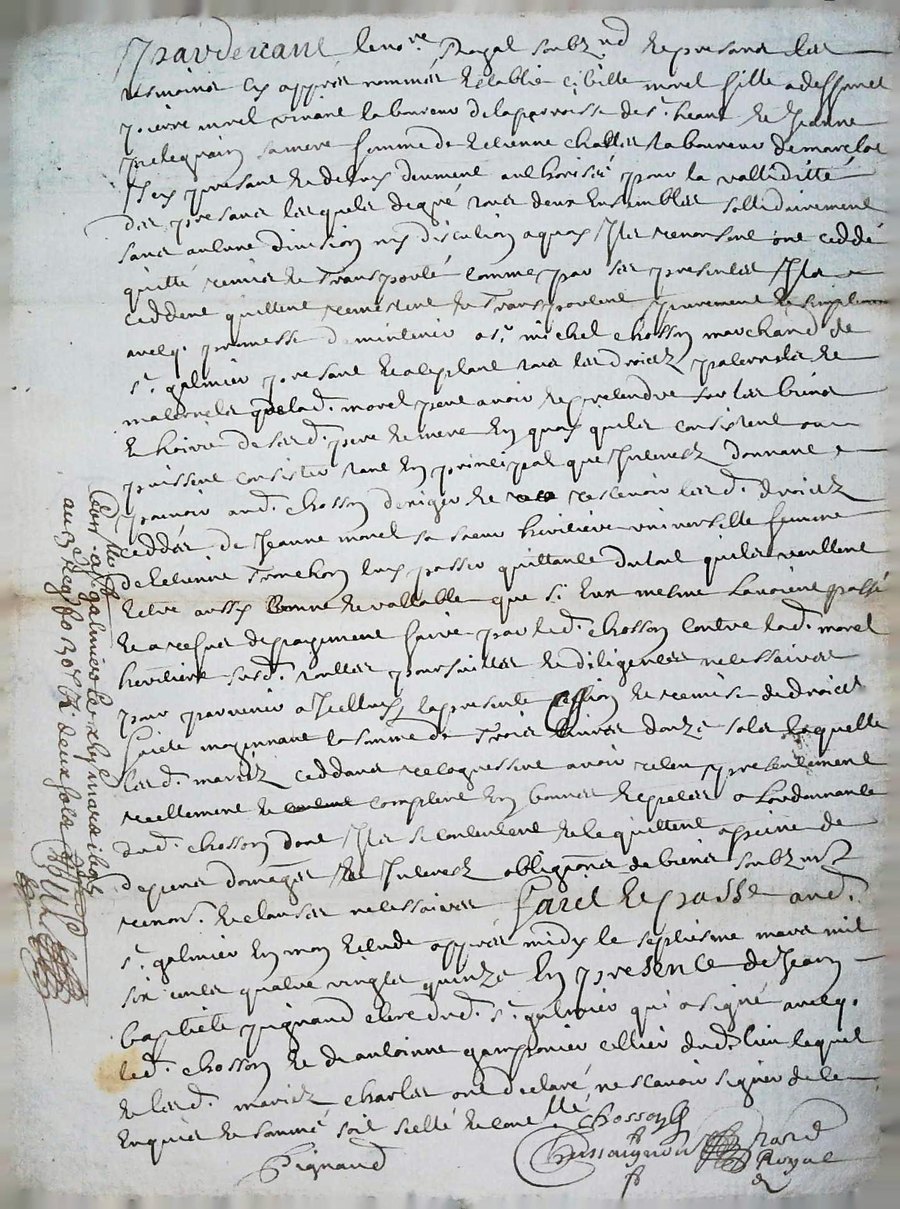 Pardevant le no.re Royal soubz.né Et presans les
tesmoins cy appres nommés Establie sibille morel fille a deffunct
pierre morel vivant laboureur de la parroisse de s.t heant Et Jeanne
sa mere femme de Estienne Challes laboureur de marclop
Icy presant Et de luy deument authorisée pour la valliditté
des presantes lesquels de gré tous deux Ensembles sollidairement
sans aulcune division ny discution a quoy Ils renonsent ont ceddé
quitté remis Et Transporté comme par ses presentes Ils
ceddent quittent remestent Et Transportent purement Et simplement
avecq. promesse de maintenir a s.r michel Chosson marchand de
s.t galmier presant Et aceptant tous les droictz paternels Et
maternels que lad. morel peut avoir Et prétendre sur les biens
Et hoirie de sesd. pere Et mere En quoy quils consistent ou
puissent consister tant En principal que Interestz donnant
pouvoir aud. Chosson d'exiger Et rescevoir lesd. droictz
ceddés de Jeanne morel sa soeur heritiere universelle femme
de Estienne luy passer quittance du tout quils veullent
Estre aussy bonne Et vallable que si Eux mesme l'avoient passé
Et a reffus de payement faire par led. Chosson contre lad. morel
heritiere susd. touttes poursuittes Et diligences necessaires
pour parvenir a Icelluy la presente cession Et remise de droictz
faicte moyennant la somme de Trois livres douze sols laquelle
lesd. mariez ceddans ont Confessé avoir receu presentement
reellement Et comptent En bonnes Especes a Lordonnance
dud. Chosson dont Ils se contentent Et le quittent a peine de
despens domages Et Interestz obliga.ons de biens soubzmis.
renons. Et clauses necessaires faict Et passé aud.
s.t galmier En mon Estude appres midy le septiesme mars mil
six cents quatre vingts quinze En presence de Jean
baptiste pignaud clerc dud. s.t galmier qui a signé avecq.
led. Chosson Et de antoinne cellier dud. lieu lequel
Et lesd. mariez Charles ont declaré ne scavoir signer de ce
Enquis Et sommé soit scellé Et con.llé
Chosson
Pignaud
Royal
Con.llé A
s.t galmier le mars
au 3 Reg. f.o 130 R. deux sols